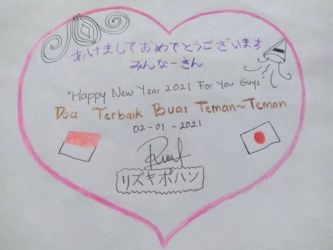 あけましておめでとうございます
みんなーさん
"Happy New Year 2021 For You Guys"
Doa Terbaik Buat Teman~Teman
02-01-2021
リズキポハン